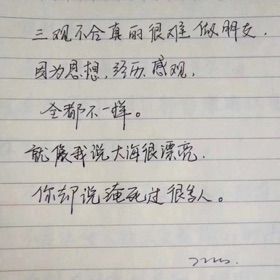 三观不合真的很难做朋友.
因为思想,经历,感观,
全都不一样。
就像我说大海很漂亮.
你却说淹死过很多人。